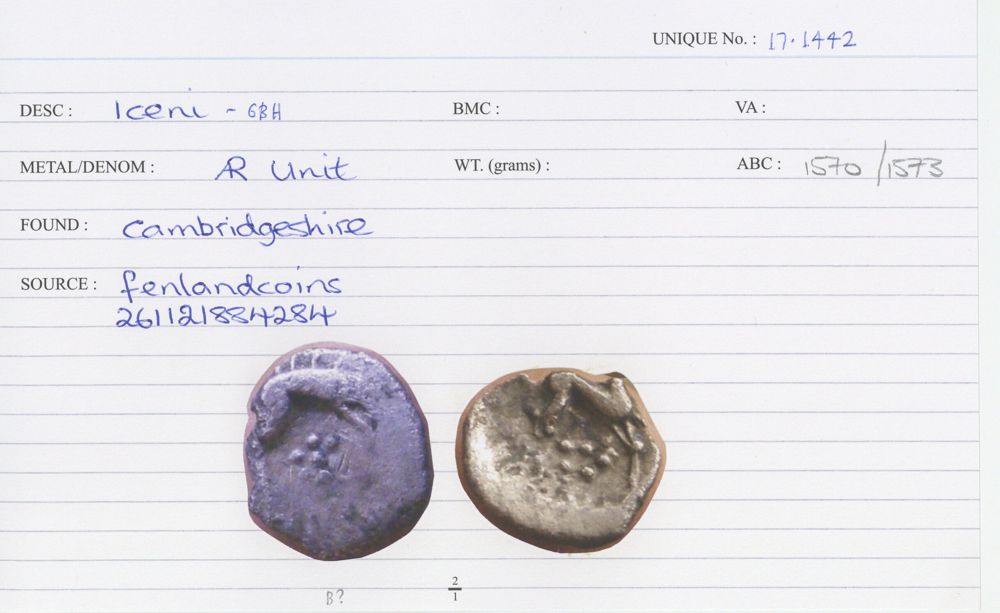 UNIQUE No. : 17.1442
DESC : Iceni - GBH BMC : VA :
METAL/DENOM : AR Unit WT. (grams) : ABC : 1570/1573
FOUND : Cambridgeshire
SOURCE : fenlandcoins
261121884284
B? 2/1